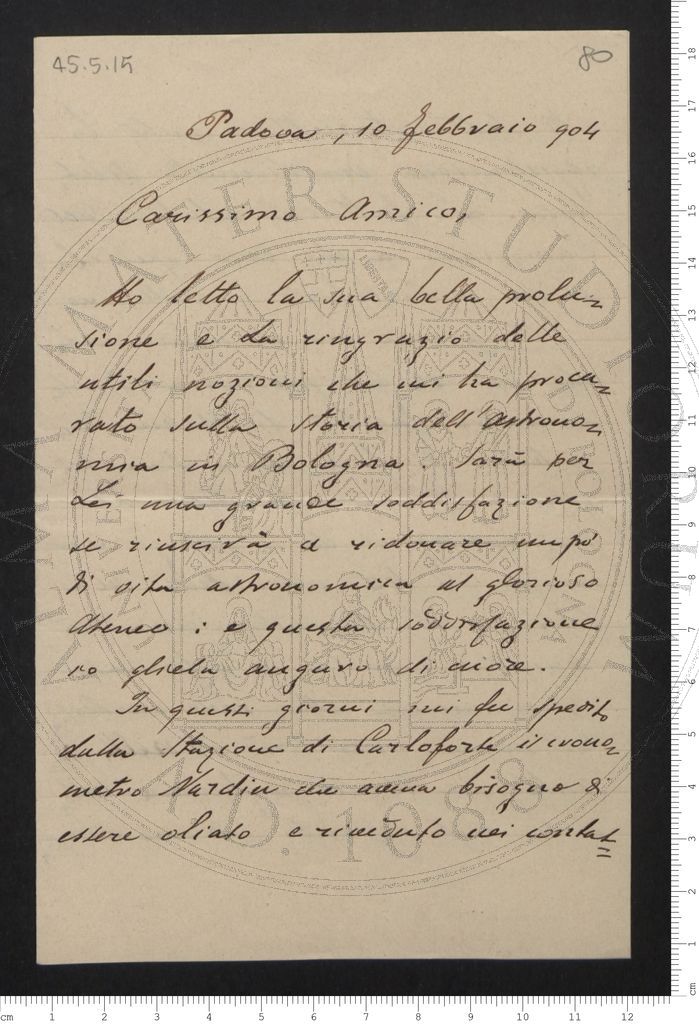 45.5.15
80
Padova, 10 febbraio 904
Carissimo Amico,
Ho letto la sua bella prolu-
sione e La ringrazio delle
utili nozioni che mi ha procu-
rato sulla storia dell'astrono-
mia in Bologna. Sarà per
Lei una grande soddisfazione
se riuscirà a ridonare un po'
di vita astronomica al glorioso
Ateneo: e questa soddisfazione
io gliela auguro di cuore.
In questi giorni mi fu spedito
dalla Stazione di Carloforte il crono-
metro Nardin che aveva bisogno di
essere oliato e riveduto nei contat=
ALMA MATER STUDIORUM
A.D. 1088
LIBERTAS